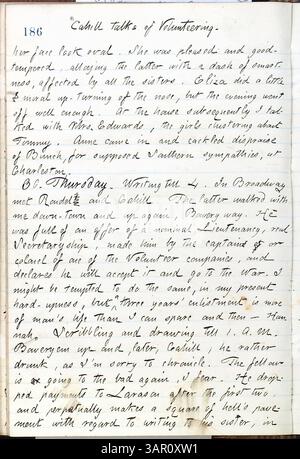 "Cahill talks of Volunteering.
186
her face look oval. She was pleased and good-
tempered, allaying the latter with a dash of smart-
ness, affected by all the sisters. Eliza did a little
moral up-turning of the nose, but the evening went
off well enough. At the house subsequently I tal-
ked with Mrs. Edwards, the girls clustering about
Tommy. Anne came in and cackled dispraise
of Bunch, for supposed Southern sympathies, at
Charleston.
30. Thursday. Writing till 4. In Broadway
met and Cahill. The latter walked with
me down-town and up again, Bowery way. He
was full of an offer of a nominal Lieutenancy, real
Secretaryship, made him by the captain or co-
lonel of one of the Volunteer companies, and
declares he will accept it and go to the War. I
might be tempted to do the same, in my present
hard-upness, but three years' enlistment is more
of man's life than I can spare and then — Han-
nah. Scribbling and drawing till 1. A.M.
Boweryem up and, later, Cahill, he rather
drunk, as I'm sorry to chronicle. The fellow
is going to the bad again, I fear. He drop-
ped payments to Larason after the first two
and perpetually makes a square of hell's pave-
ment with regard to writing to his sister, in
alamy
Image ID: 3AR0XW1
www.alamy.com